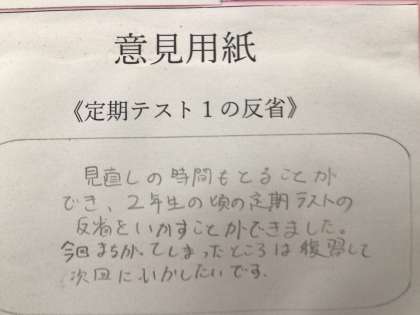 意見用紙
《定期テスト1の反省》
見直しの時間もとることが
でき、2年生の頃の定期テストの
反省をいかすことができました。
今回まちがってしまったところは復習して
次回にいかしたいです。